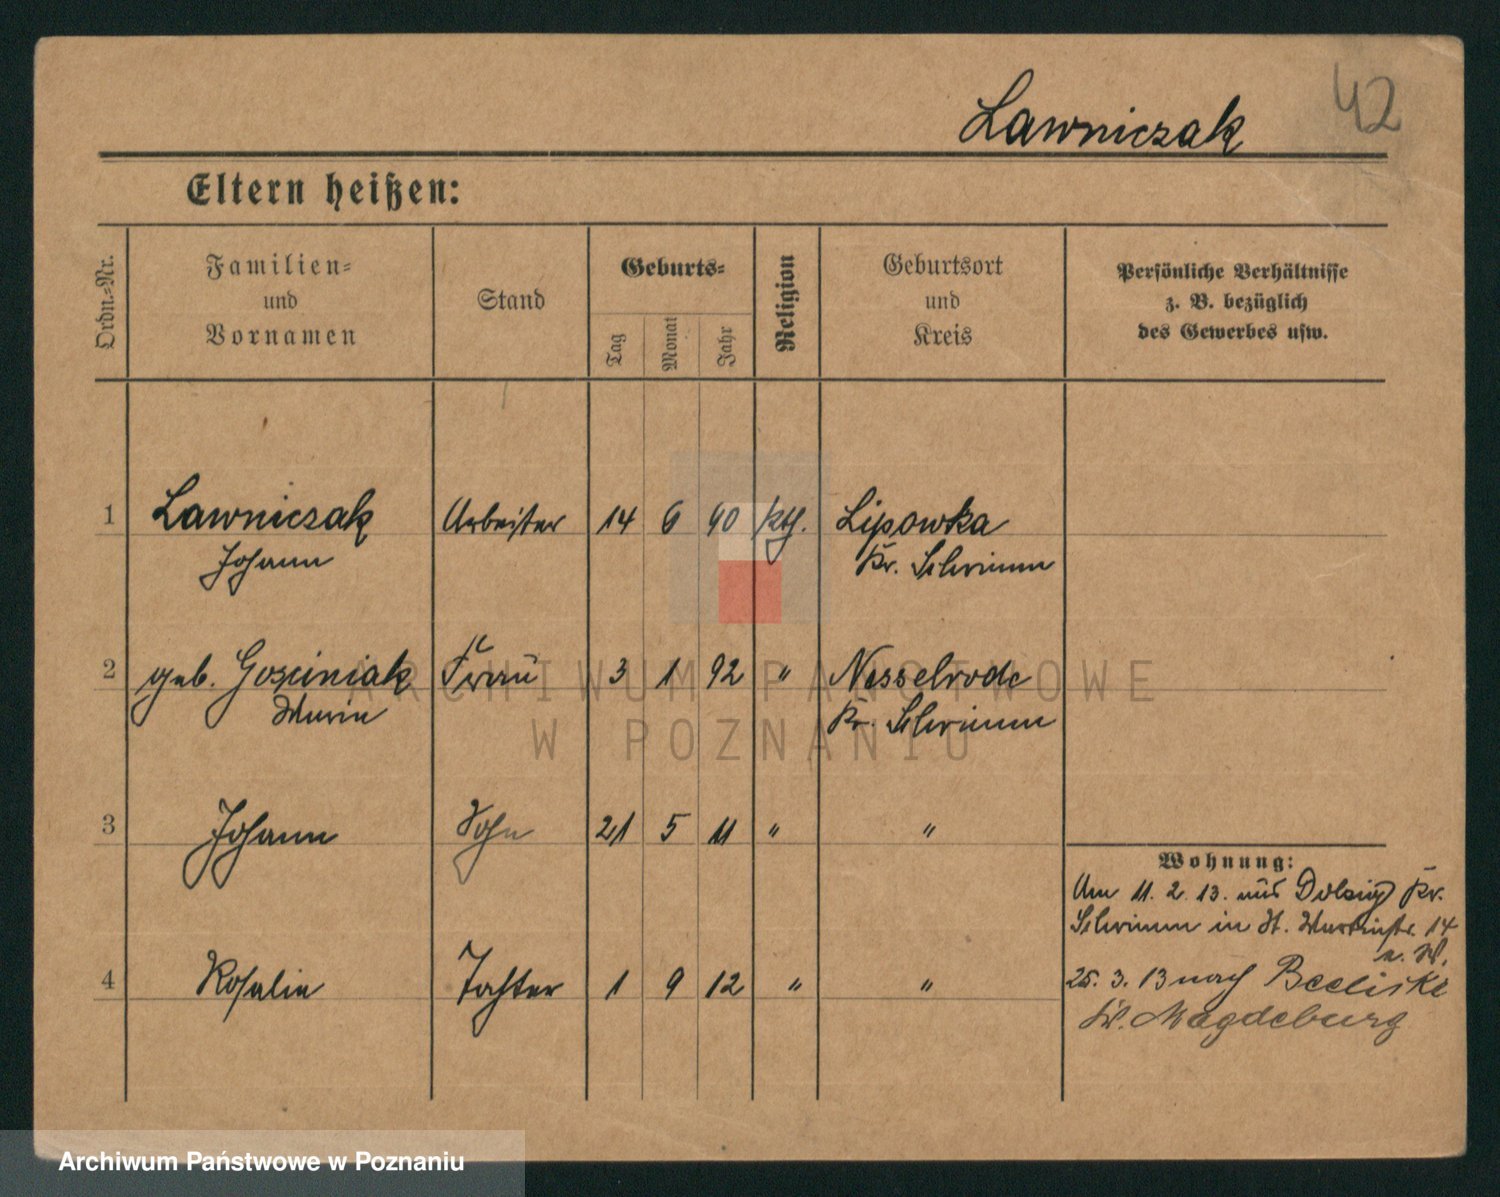 42
Lawniczak
Eltern heißen:
Ordn.-Nr.
Familien-
und
Vornamen
Stand
Geburts-
Tag
Monat
Jahr
Religion
Geburtsort
und
Kreis
Persönliche Verhältnisse
z. B. bezüglich
des Gewerbes usw.
1 Lawniczak Arbeiter 14 6 90 kth. Lipowka
Johann Kr. Schrimm
2 geb. Gosciniak Frau 3 1 92 " Nesselrode
Maria Kr. Schrimm
3 Johann Sohn 21 5 11 " "
Wohnung:
Am 11. 2. 13. aus Dolzig Kr.
Schrimm in St. Martinstr. 14
4 Rosalie Tochter 1 9 12 " "
25. 3. 13 nach
Magdeburg
ARCHIWUM PAŃSTWOWE
W POZNANIU
Archiwum Państwowe w Poznaniu